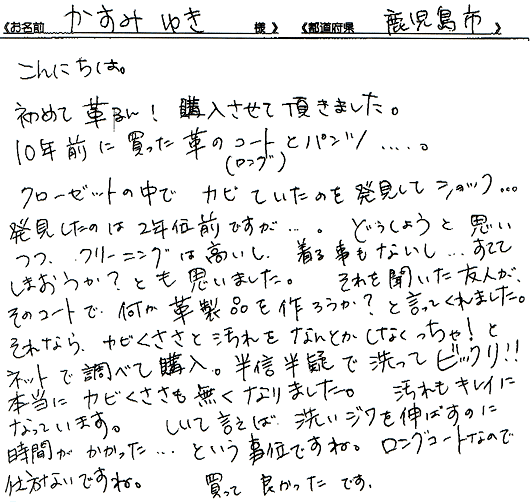 《お名前 かすみ ゆき 様》 《都道府県 鹿児島市 》
こんにちは。
初めて革るん！購入させて頂きました。
10年前に買った革のコートとパンツ……。
(ロング)
クローゼットの中でカビていたのを発見してショック…
発見したのは2年位前ですが…。どうしようと思い
つつ、クリーニングは高いし、着る事もないし…すてて
しまおうか？とも思いました。それを聞いた友人が、
そのコートで何か革製品を作ろうか？と言ってくれました。
それなら、カビくささと汚れをなんとかしなくっちゃ！と
ネットで調べて購入。半信半疑で洗ってビックリ!!
本当にカビくささも無くなりました。汚れもキレイに
なっています。しいて言えば洗いジワを伸ばすのに
時間がかかった…という事位ですね。ロングコートなので
仕方ないですね。買って良かったです。